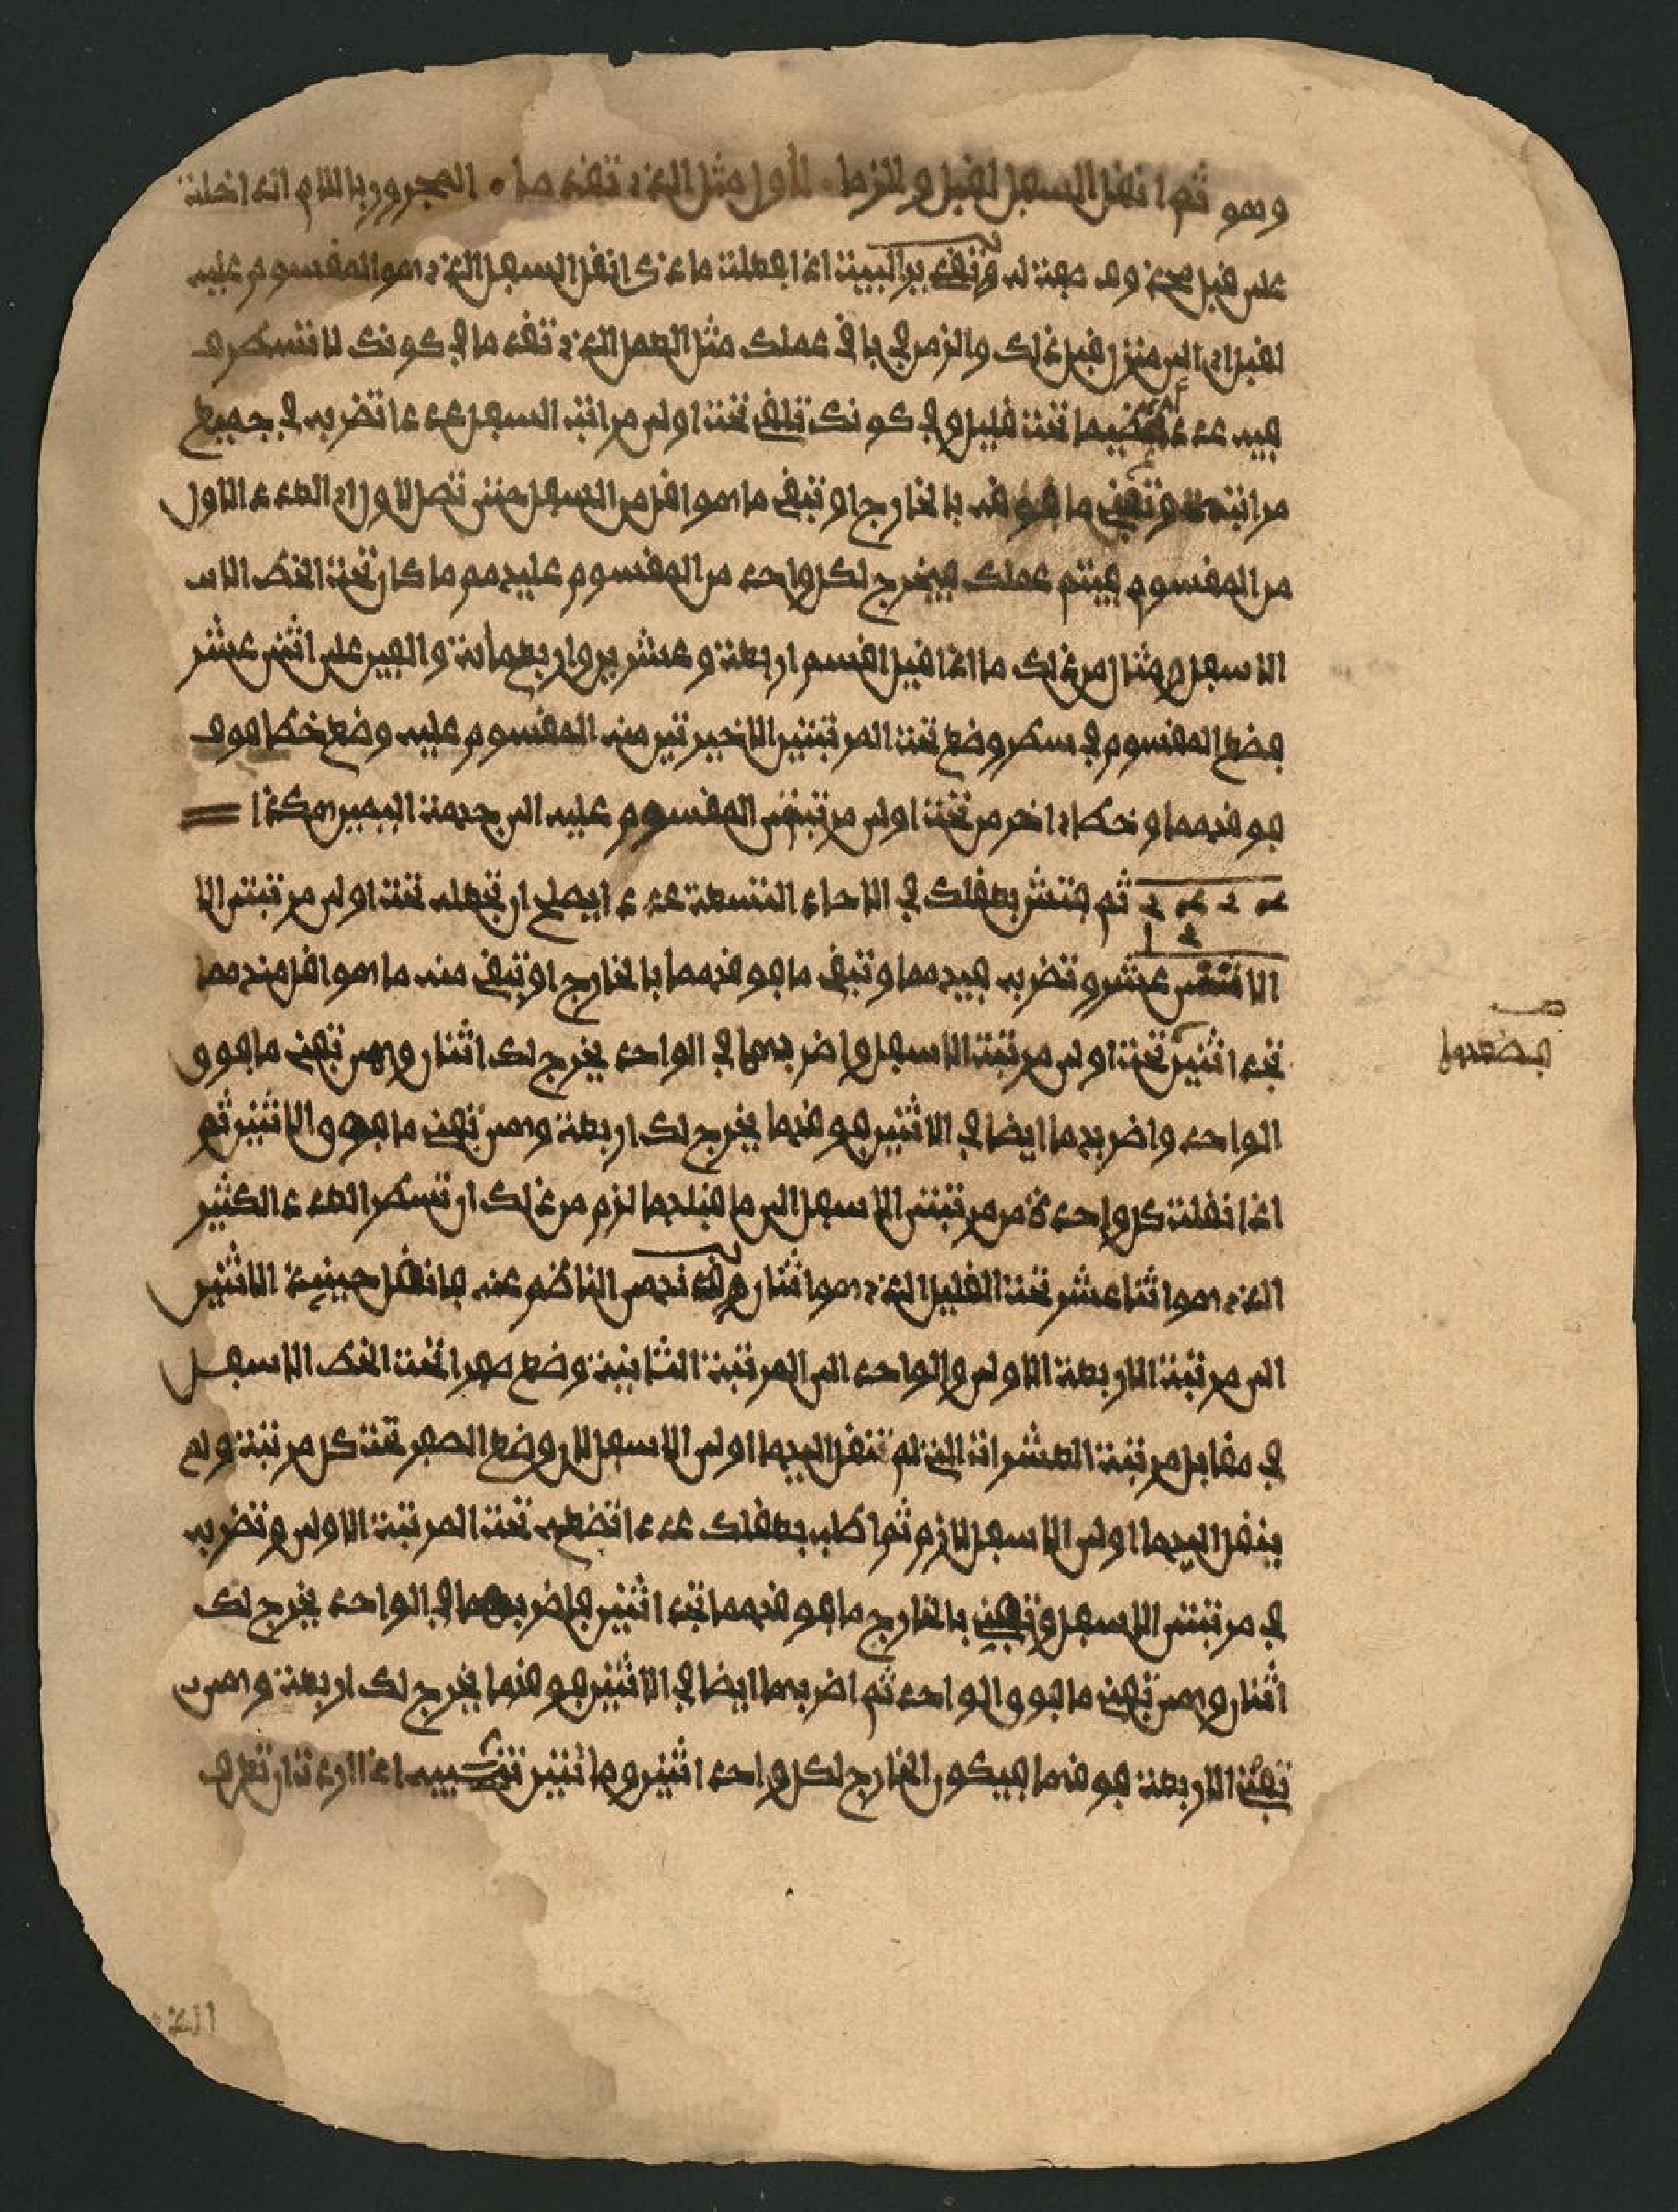 وهو ثم انقل السفل لقبل والزما • للأول مثل الذي تقدما • المجرور باللام الداخلة
على قبل محذوف صفة له وتقدير البيت اذا فعلت ما ذكر انقل السفل الذي هو المقسوم عليه
لقبل اي الى منزل قبل ذلك والزمن في باقي عملك مثل العمل الذي تقدم ما في كونك لا تسطر
فيه عددا تحت قليل وفي كونك تلقي تحت اولى مراتب السفل عددا تضربه في جميع
مراتبه وتفني ما فوقه بالخارج او تبقي ما هو اقل من السفل حتى تصل للاول اي العدد الاول
من المقسوم فيتم عملك فيخرج لكل واحد من المقسوم عليهم ما كان تحت الخط الاسـ
الاسفل ومثال من ذلك ما اذا قيل اقسم اربعة وعشرين واربعمائة والفين على اثني عشر
فضع المقسوم في سطر وضع تحت المرتبتين الاخيرتين منه المقسوم عليه وضع خطا فوف
فوقهما وخطا اخر من تحت اولى مرتبتي المقسوم عليه الى جهة اليمين هكذا
٢ ٤ ٢ ٤ ثم فتش بعقلك في الاحاد التسعة عددا يصلح ان تجعله تحت اولى مرتبتي الا
١ ٢
الاثني عشر وتضربه فيهما وتبقي ما فوقهما بالخارج او تبقي منه ما هو اقل منهما
تجد اثنين تحت اولى مرتبة الاسفل واضربهما في الواحد يخرج لك اثنان وهي تفني ما فوق
فضعهما
الواحد واضربهما ايضا في الاثنين فوقهما يخرج لك اربعة وهي تفني ما فوق الاثنين ثم
اذا نقلت كل واحدة من مرتبتي الاسفل الى ما قبلهما لزم من ذلك ان تسطر العدد الكثير
الذي هو اثنا عشر تحت القليل الذي هو اثنان وقد نهى الناظم عنه فانقل حينئذ الاثنين
الى مرتبة الاربعة الاولى والواحد الى المرتبة الثانية وضع صفرا تحت الخط الاسفل
في مقابل مرتبة العشرات التي لم تنقل اليها اولى الاسفل لان وضع الصفر تحت كل مرتبة ولم
ينقل اليها اولى الاسفل لازم ثم اطلب بعقلك عددا تضعه تحت المرتبة الاولى وتضربه
في مرتبتي الاسفل وتفني بالخارج ما فوقهما تجد اثنين فاضربهما في الواحد يخرج لك
اثنان وهي تفني ما فوق الواحد ثم اضربهما ايضا في الاثنين فوقهما يخرج لك اربعة وهي
تفني الاربعة فوقهما فيكون الخارج لكل واحد اثنين ومائتين تنبيه اذا اردت ان تعرف